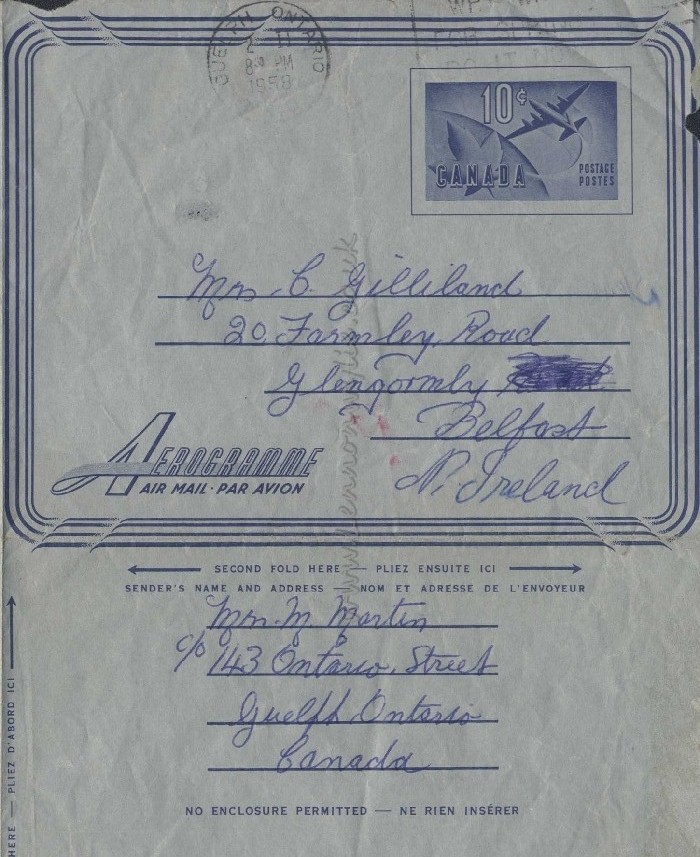 GUELPH ONTARIO
2 II
8 30 PM
1958
10¢
CANADA
POSTAGE
POSTES
Mrs. C. Gilliland
20 Farmley Road
Glengormly
Belfast
N. Ireland
AEROGRAMME
AIR MAIL · PAR AVION
SECOND FOLD HERE — PLIEZ ENSUITE ICI
SENDER'S NAME AND ADDRESS — NOM ET ADRESSE DE L'ENVOYEUR
Mrs. M. Martin
c/o 143 Ontario, Street
Guelph Ontario
Canada
NO ENCLOSURE PERMITTED — NE RIEN INSÉRER
HERE — PLIEZ D'ABORD ICI